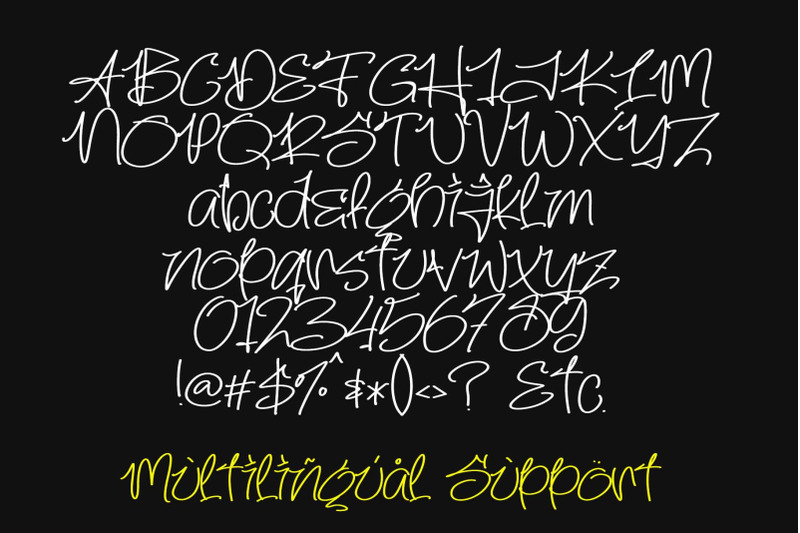 ABCDEFGHIJKLM
NOPQRSTUVWXYZ
abcdefghijklm
nopqrstuvwxyz
0123456789
!@#$%^&*()<>? Etc.
Mùltìlìñgúål Sùppört